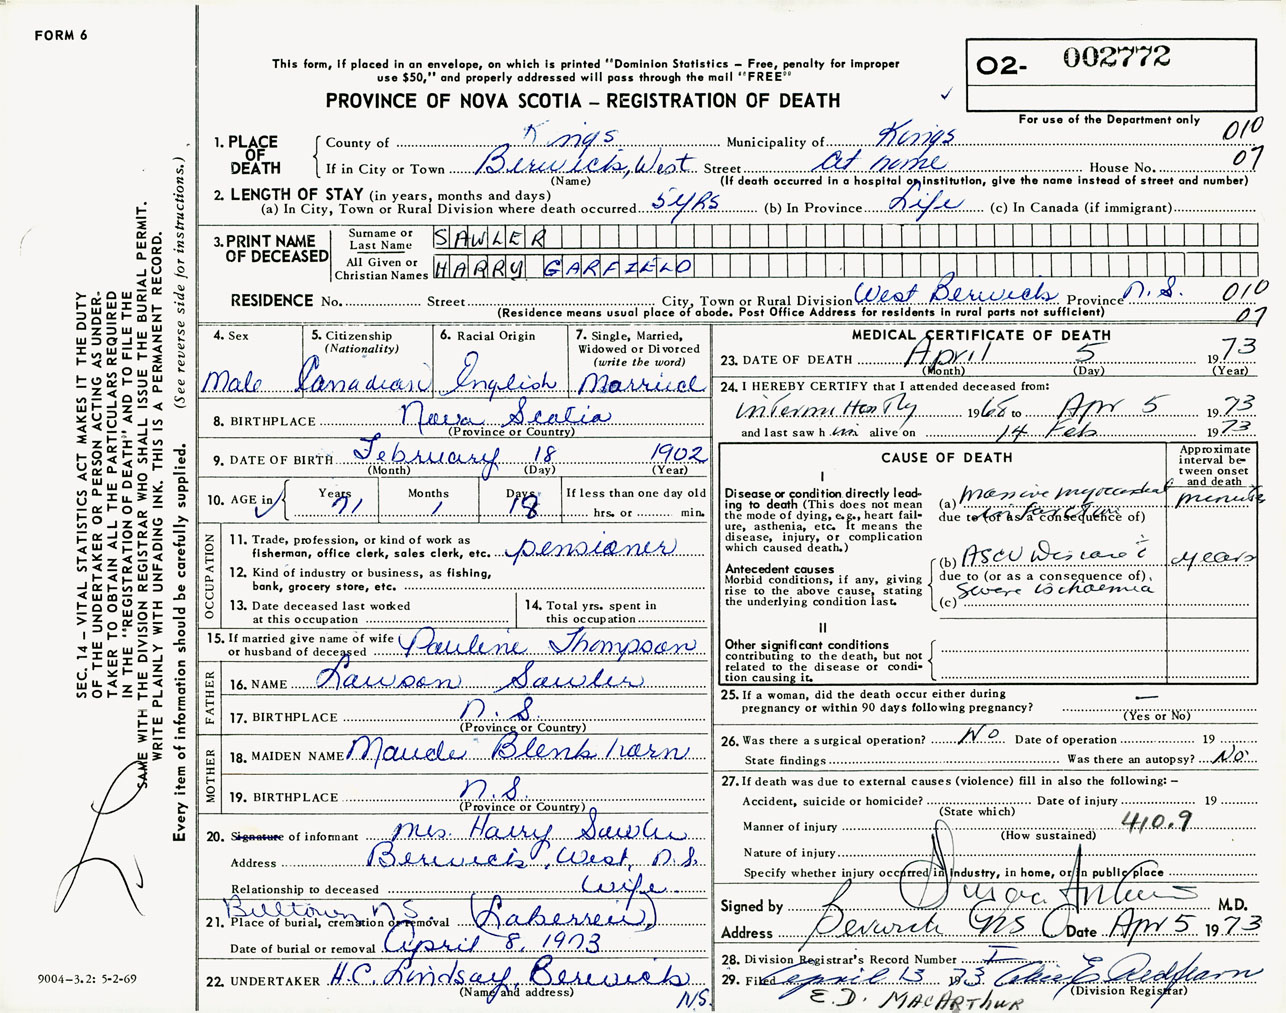 FORM 6
This form, if placed in an envelope, on which is printed "Dominion Statistics – Free, penalty for improper
use $50," and properly addressed will pass through the mail "FREE"
PROVINCE OF NOVA SCOTIA – REGISTRATION OF DEATH
O2- 002772
For use of the Department only
SEC. 14 – VITAL STATISTICS ACT MAKES IT THE DUTY
OF THE UNDERTAKER OR PERSON ACTING AS UNDER-
TAKER TO OBTAIN ALL THE PARTICULARS REQUIRED
IN THE "REGISTRATION OF DEATH" AND TO FILE THE
SAME WITH THE DIVISION REGISTRAR WHO SHALL ISSUE THE BURIAL PERMIT.
WRITE PLAINLY WITH UNFADING INK. THIS IS A PERMANENT RECORD.
Every item of information should be carefully supplied. (See reverse side for instructions.)
1. PLACE OF DEATH
County of Kings Municipality of Kings 010
If in City or Town Berwick, West Street At home House No. 07
(Name) (If death occurred in a hospital or institution, give the name instead of street and number)
2. LENGTH OF STAY (in years, months and days)
(a) In City, Town or Rural Division where death occurred 5 yrs (b) In Province Life (c) In Canada (if immigrant)
3. PRINT NAME OF DECEASED
Surname or Last Name SAWLER
All Given or Christian Names HARRY GARFIELD
RESIDENCE No. Street City, Town or Rural Division West Berwick Province N.S. 010
(Residence means usual place of abode. Post Office Address for residents in rural parts not sufficient) 07
4. Sex Male
5. Citizenship (Nationality) Canadian
6. Racial Origin English
7. Single, Married, Widowed or Divorced (write the word) Married
8. BIRTHPLACE Nova Scotia
(Province or Country)
9. DATE OF BIRTH February 18 1902
(Month) (Day) (Year)
10. AGE in Years 71 Months 1 Days 18 If less than one day old hrs. or min.
OCCUPATION
11. Trade, profession, or kind of work as
fisherman, office clerk, sales clerk, etc. pensioner
12. Kind of industry or business, as fishing,
bank, grocery store, etc.
13. Date deceased last worked
at this occupation
14. Total yrs. spent in
this occupation
15. If married give name of wife
or husband of deceased Pauline Thompson
FATHER
16. NAME Lawson Sawler
17. BIRTHPLACE N.S.
(Province or Country)
MOTHER
18. MAIDEN NAME Maude Blenkhorn
19. BIRTHPLACE N.S.
(Province or Country)
20. Signature of informant Mrs. Harry Sawler
Address Berwick, West, N.S.
Relationship to deceased Wife
Billtown NS
21. Place of burial, cremation or removal
Date of burial or removal April 8, 1973
22. UNDERTAKER H.C. Lindsay, Berwick
(Name and address) N.S.
9004–3.2: 5-2-69
MEDICAL CERTIFICATE OF DEATH
23. DATE OF DEATH April 5 1973
(Month) (Day) (Year)
24. I HEREBY CERTIFY that I attended deceased from:
intermittently 1968 to Apr 5 1973
and last saw him alive on 14 Feb 1973
CAUSE OF DEATH
Approximate interval between onset and death
I
Disease or condition directly lead-
ing to death (This does not mean
the mode of dying, e.g., heart fail-
ure, asthenia, etc. It means the
disease, injury, or complication
which caused death.)
(a) massive myocardial infarction minutes
due to (or as a consequence of)
Antecedent causes
Morbid conditions, if any, giving
rise to the above cause, stating
the underlying condition last.
(b) ASCV Disease c̄ years
due to (or as a consequence of)
(c) severe ischaemia
II
Other significant conditions
contributing to the death, but not
related to the disease or condi-
tion causing it.
25. If a woman, did the death occur either during
pregnancy or within 90 days following pregnancy? –
(Yes or No)
26. Was there a surgical operation? No Date of operation 19
State findings Was there an autopsy? No
27. If death was due to external causes (violence) fill in also the following: –
Accident, suicide or homicide? Date of injury 19
(State which)
Manner of injury 410.9
(How sustained)
Nature of injury
Specify whether injury occurred in industry, in home, or in public place
Signed by M.D.
Address Berwick NS Date Apr 5 1973
28. Division Registrar's Record Number
29. Filed April 13 73
(Division Registrar)
E.D. MACARTHUR